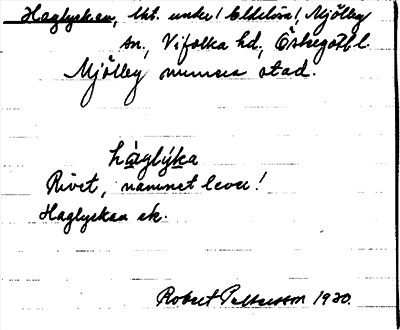 Haglyckan, lht. under Eldslösa, Mjölby
sn., Vifolka hd., Östergötl. l.
Mjölby numera stad.
háglýka
Rivet, namnet lever!
Haglyckan ek.
Robert Pettersson 1930.